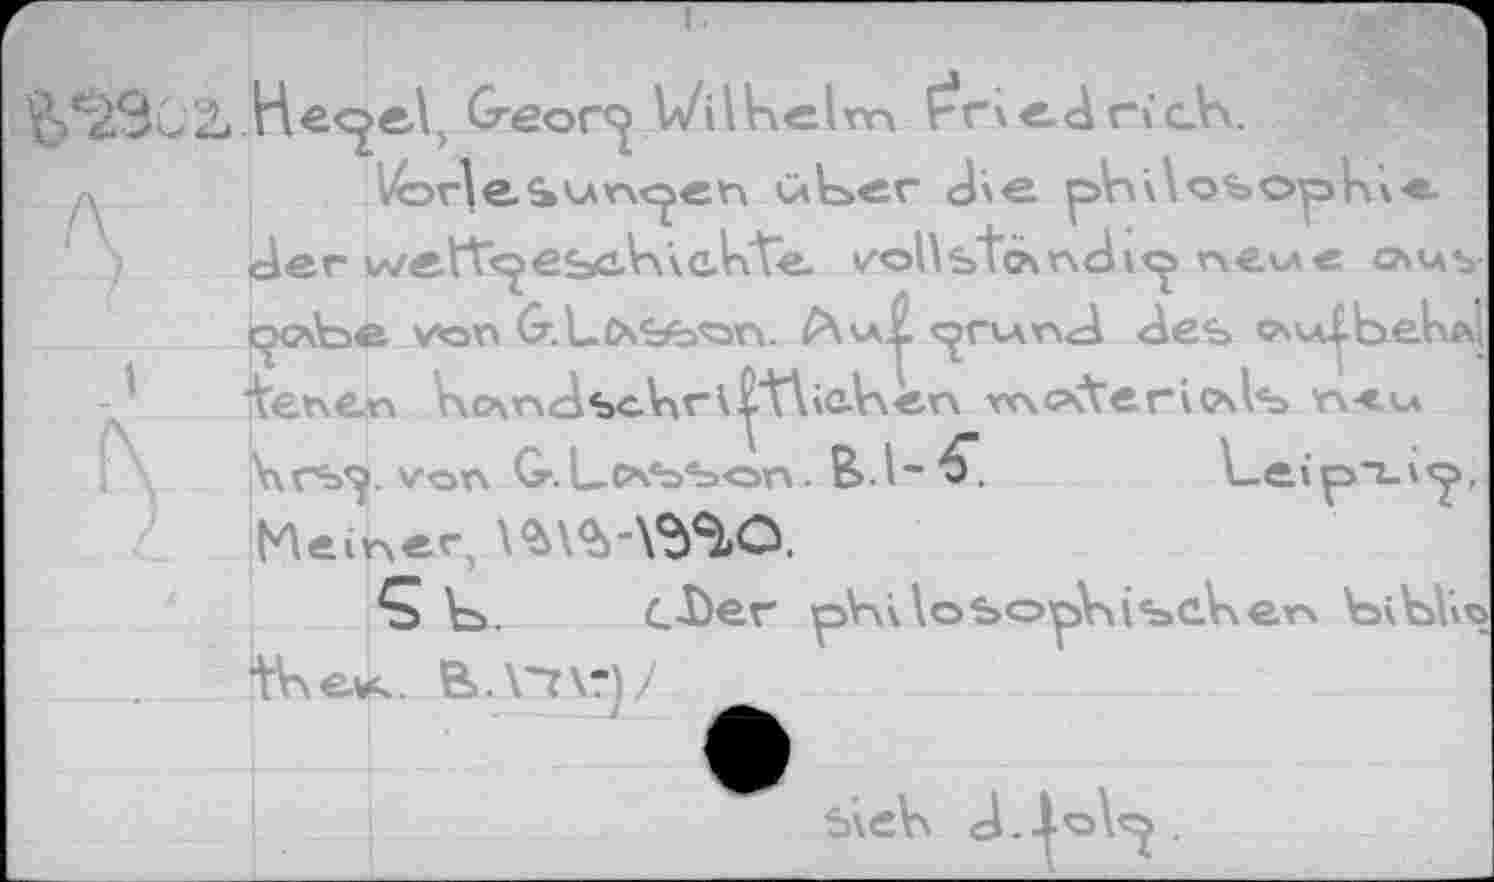 B2902 Hegel, Georg Wilhelm Friedrich.
Vorlesungen über die philosophie
der weltgeschichte. vollständig neue aus-
gabe von G. Lasson. Auf grund des aufbehal
tenen handschriftlichen materials neu
hrsg. von G. Lasson. B.1-5. Leipzig,
Meiner, 1919-1920.
5 b. (Der philosophischen biblio
thek. B.171
sieh d. folg.